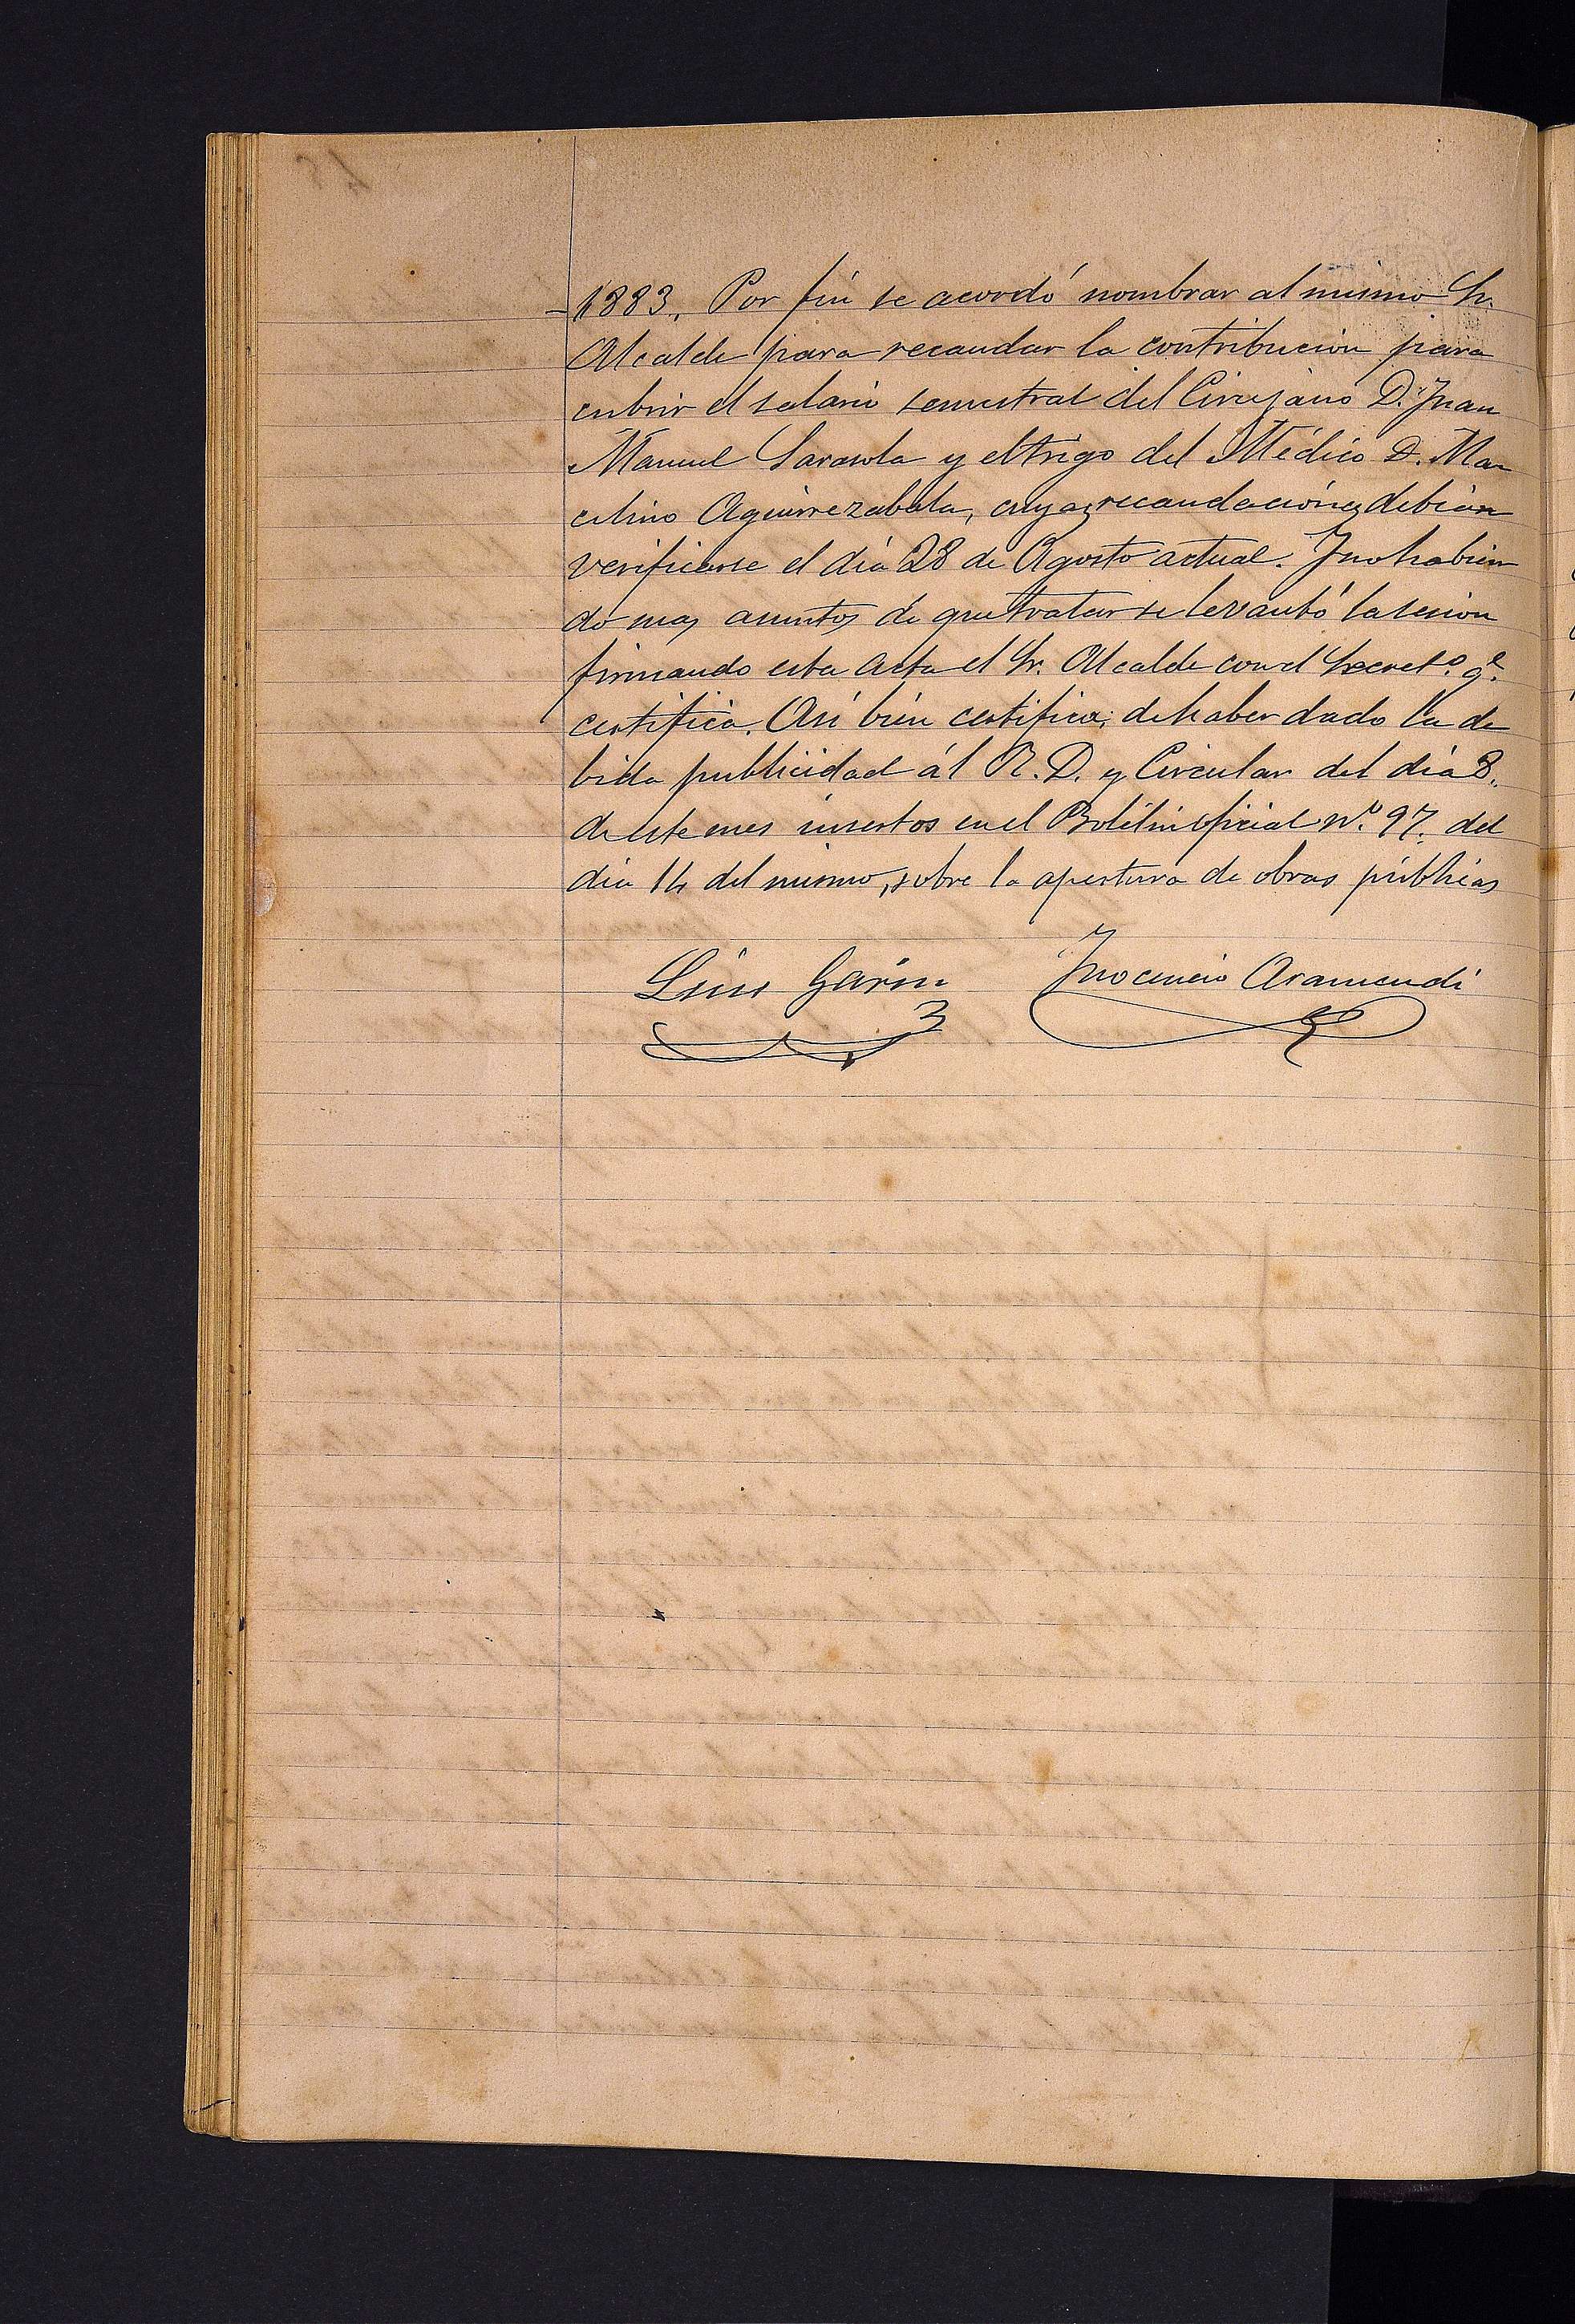 1883. Por fin se acordó nombrar al mismo Sr.
Alcalde para recaudar la contribución para
cubrir el salario semestral del Cirujano D. Juan
Manuel Sarasola y el trigo del Médico D. Mar
celino Aguirrezabala, cuyas recaudaciónes debian
verificarse el día 28 de Agosto actual. Y no habien
do mas asuntos de que tratar se levantó la sesion
firmando esta acta el Sr. Alcalde con el Secretº. qe.
certifica. Así bien certifica, de haber dado la de
bida publicidad ál R. D. y Circular del día 8.
de este mes insertos en el Boletin oficial nº. 97. del
día 14 del mismo, sobre la apertura de obras públicas
Luis Garin Ynocencio Aramendi